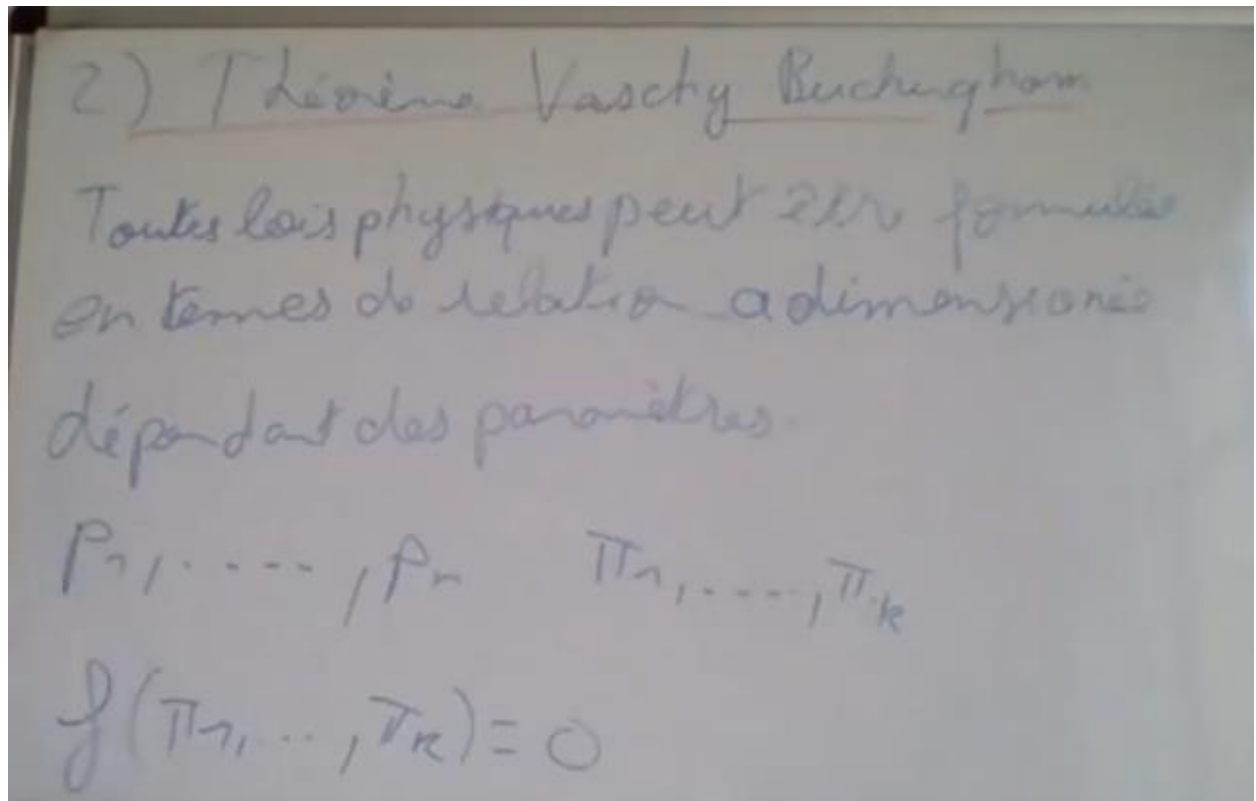 2) Théorème Vaschy Buckingham
Toutes lois physiques peut être formulée
en termes de relation adimensionée
dépendant des paramètres.
P1, ....., Pn π1, ....., πk
f(π1, ..., πk) = 0